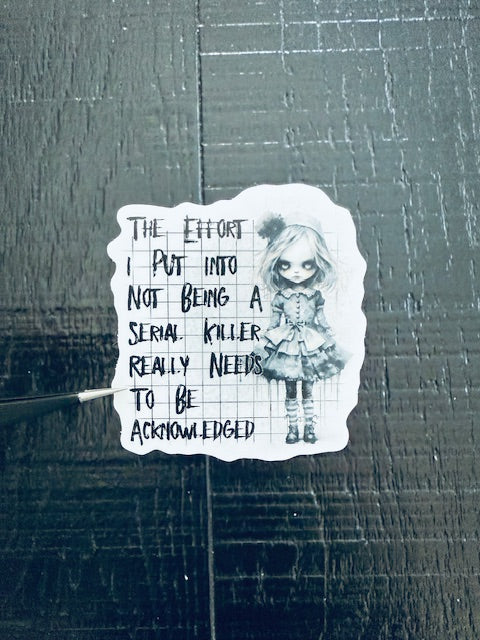 THE EFFORT
I PUT INTO
NOT BEING A
SERIAL KILLER
REALLY NEEDS
TO BE
ACKNOWLEDGED